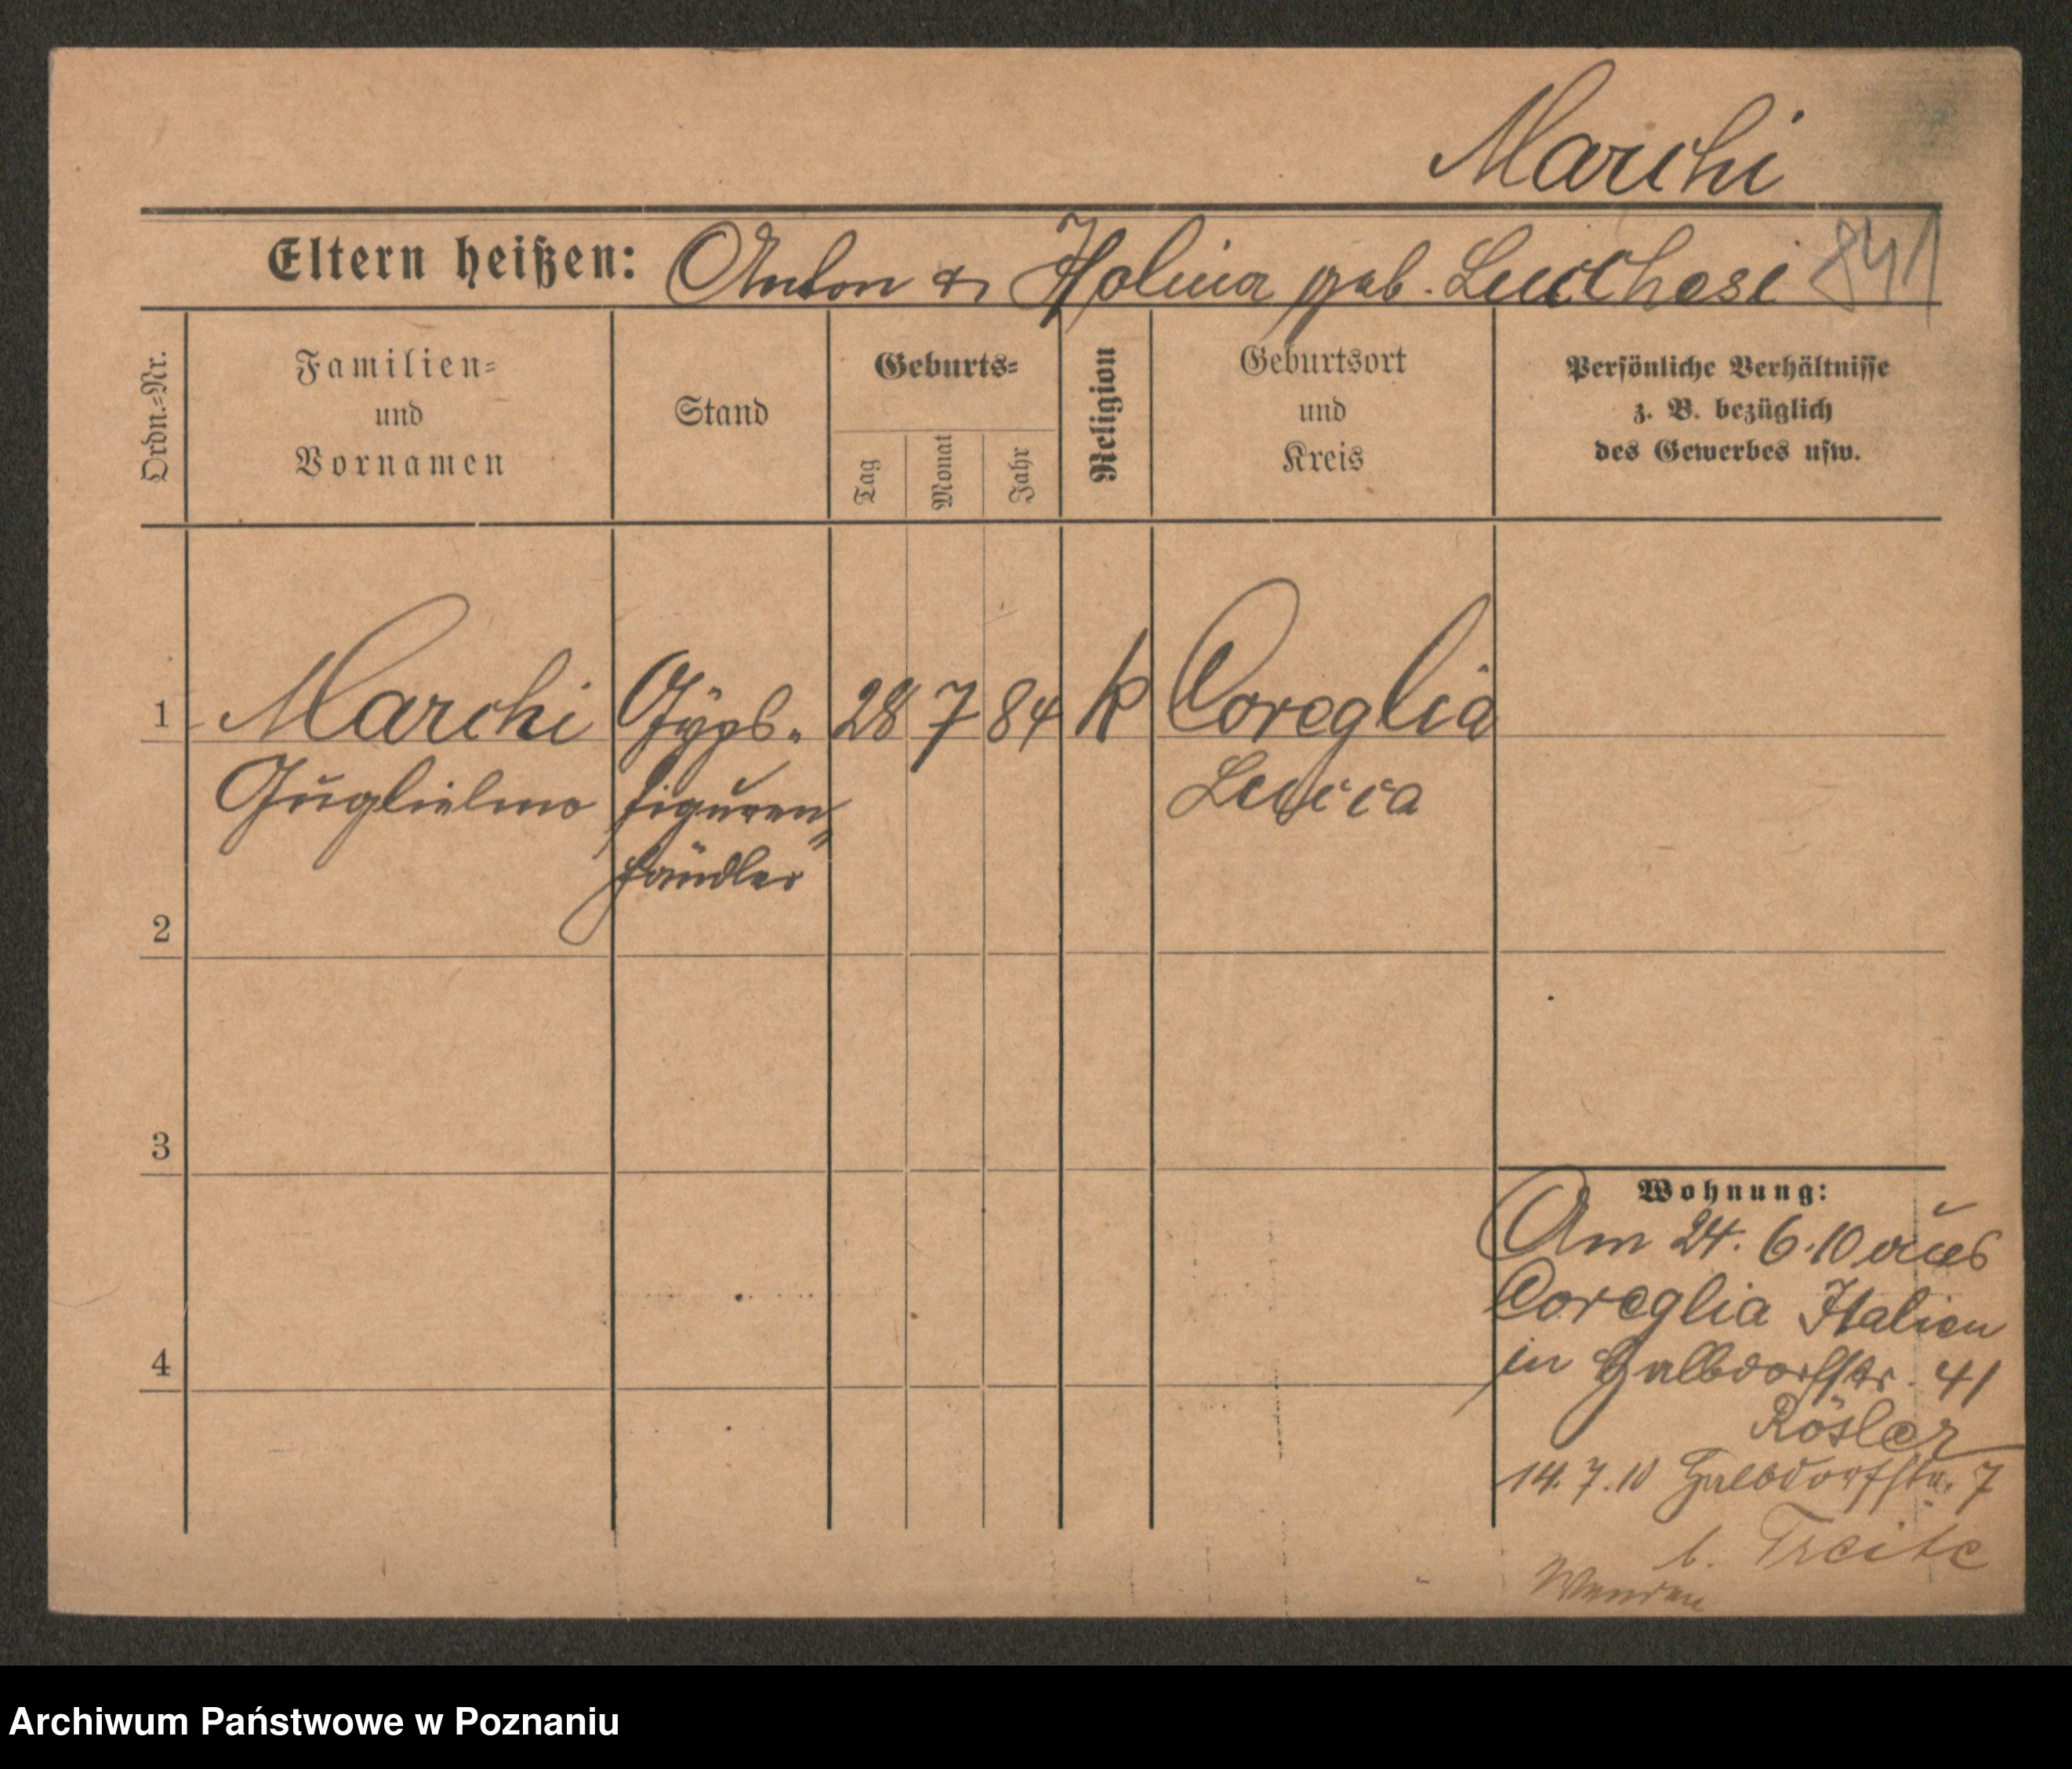 Marchi
Eltern heißen: Anton & Holina geb. Lucchesi 841
Ordn.-Nr.
Familien-
und
Vornamen
Stand
Geburts-
Tag
Monat
Jahr
Religion
Geburtsort
und
Kreis
Persönliche Verhältnisse
z. B. bezüglich
des Gewerbes usw.
1 Marchi Gyps- 28 7 84 k Coreglia
Guglielmo figuren- Lucca
händler
2
3
4
Wohnung:
Am 24. 6. 10 aus
Coreglia Italien
in Halbdorfstr. 41
Rösler
14. 7. 10 Halbdorfstr. 7
b. Treite
Wenden
Archiwum Państwowe w Poznaniu